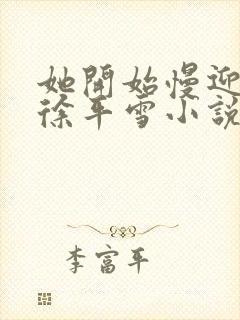 她開始慢迎
徐平雪小說
李富平